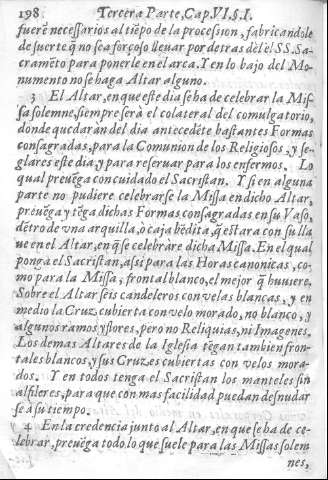 198 Tercera Parte, Cap. VI. §. I.
fuere necessarios al tiẽpo de la procession, fabricandole
de suerte q̃ no sea forçoso lleuar por detras dèl el SS. Sa-
cramẽto para ponerle en el arca. Y en lo bajo del Mo-
numento no se haga Altar alguno.
3 El Altar, en que este dia se ha de celebrar la Mis-
sa solemne, siempre serà el colateral del comulgatorio,
donde quedaràn del dia antecedẽte bastantes Formas
consagradas, para la Comunion de los Religiosos, y se-
glares este dia, y para reseruar para los enfermos. Lo
qual preuẽga con cuidado el Sacristan. Y si en alguna
parte no pudiere celebrarse la Missa en dicho Altar,
preuẽga y tẽga dichas Formas consagradas en su Vaso,
dẽtro de vna arquilla, ò caja bẽdita, q̃ estarà con su lla
ue en el Altar, en q̃ se celebràre dicha Missa. En el qual
ponga el Sacristan, assi para las Horas canonicas, co-
mo para la Missa, frontal blanco, el mejor q̃ huuiere.
Sobre el Altar sèis candeleros con velas blancas, y en
medio la Cruz cubierta con velo morado, no blanco, y
algunos ramos y flores, pero no Reliquias, ni Imagenes.
Los demas Altares de la Iglesia tẽgan tambien fron-
tales blancos, y sus Cruzes cubiertas con velos mora-
dos. Y en todos tenga el Sacristan los manteles sin
alfileres, para que con mas facilidad puedan desnudar
se à su tiempo.
4 En la credencia junto al Altar, en que se ha de ce-
lebrar, preuẽga todo lo que suele para las Missas solem
nes,